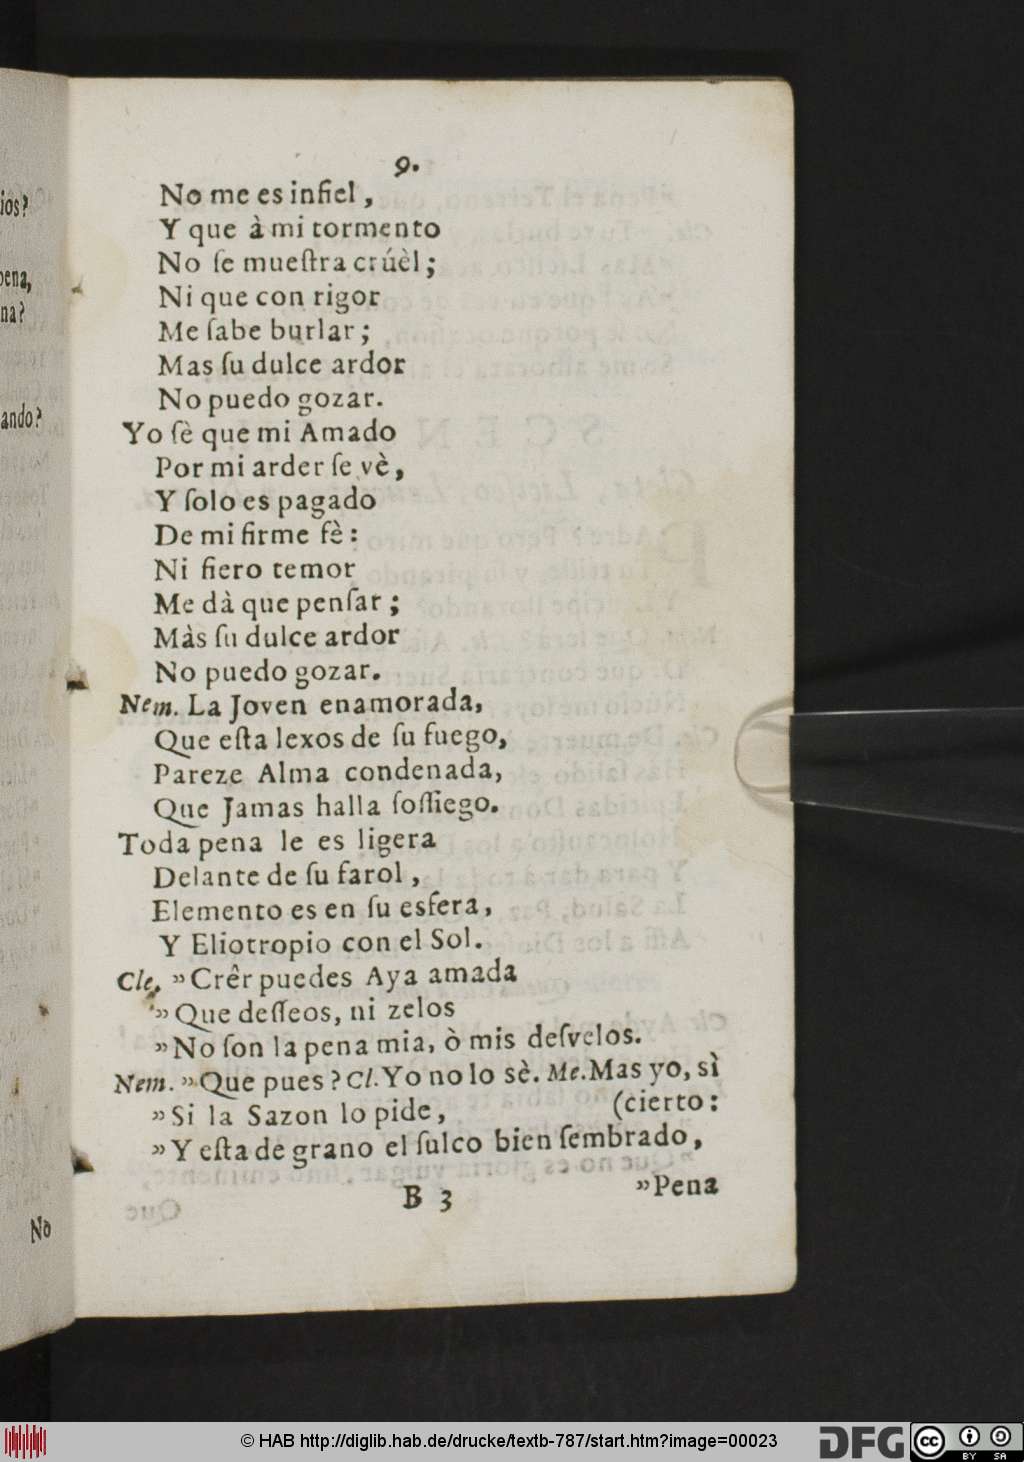 ios?
pena,
na?
ando?
No
9.
No me es infiel,
Y que à mi tormento
No ſe mueſtra crúèl;
Ni que con rigor
Me ſabe burlar;
Mas ſu dulce ardor
No puedo gozar.
Yo ſè que mi Amado
Por mi arder ſe vè,
Y ſolo es pagado
De mi firme fè:
Ni fiero temor
Me dà que penſar;
Màs ſu dulce ardor
No puedo gozar.
Nem. La Joven enamorada,
Que eſta lexos de ſu fuego,
Pareze Alma condenada,
Que Jamas halla ſoſſiego.
Toda pena le es ligera
Delante de ſu farol,
Elemento es en ſu esfera,
Y Eliotropio con el Sol.
Cle. "Crêr puedes Aya amada
"Que deſſeos, ni zelos
"No ſon la pena mia, ò mis deſvelos.
Nem. "Que pues? Cl. Yo no lo sè. Me. Mas yo, sì
"Si la Sazon lo pide, (cierto:
"Y eſta de grano el ſulco bien ſembrado,
B 3 "Pena
© HAB http://diglib.hab.de/drucke/textb-787/start.htm?image=00023
DFG
cc BY SA